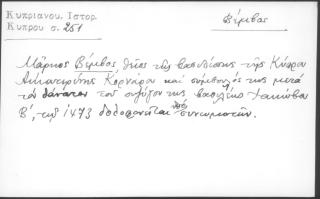 Κυπριανού. Ιστορ.
Κύπρου σ. 251
Βέμβος
Μάρκος Βέμβος θείος της βασιλίσσης της Κύπρου
Αικατερίνης Κορνάρου και σύμβουλός της μετά
τον θάνατον του συζύγου της βασιλέως Ιακώβου
Β', τω 1473 δολοφονείται υπό συνωμοτών.